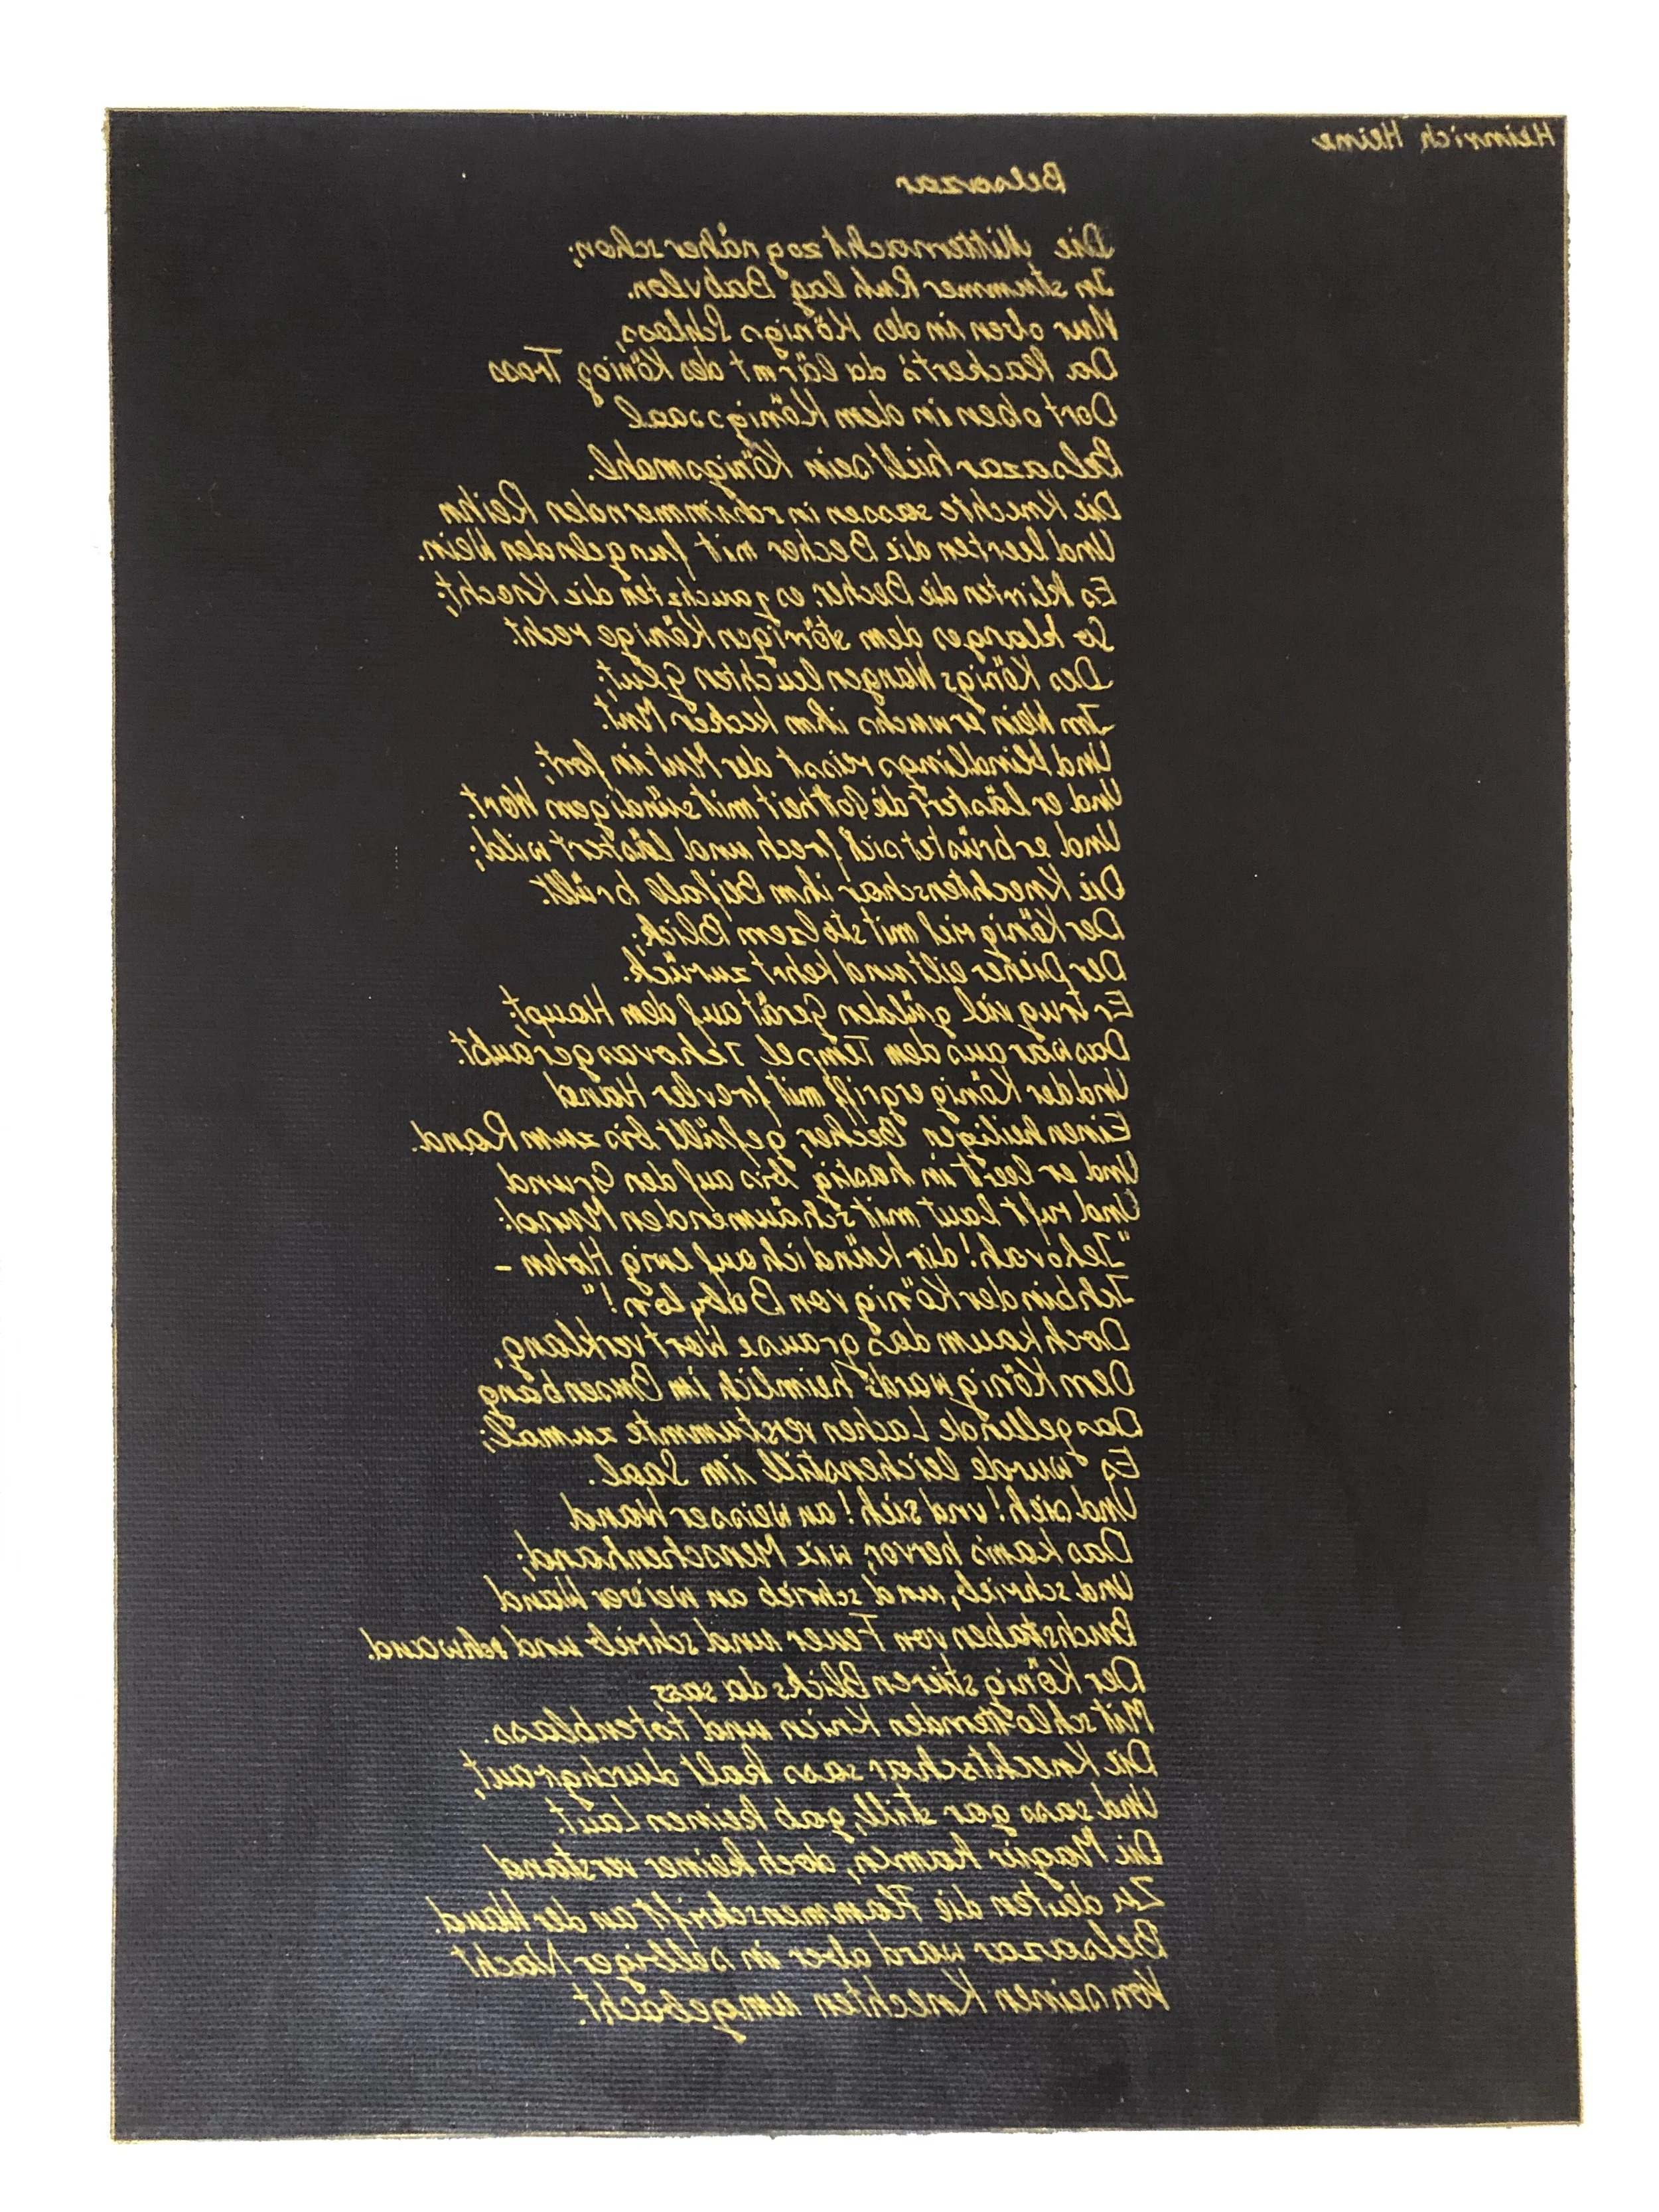 Heinrich Heine
Belsazar
Die Mitternacht zog näher schon;
In stummer Ruh lag Babylon.
Nur oben in des Königs Schloss,
Da flackert's da lärmt des König Tross
Dort oben in dem Königssaal
Belsazar hielt sein Königsmahl.
Die Knechte sassen in schimmernden Reihn
Und leerten die Becher mit fungelnden Wein.
Es klirrten die Becher, es jauchzten die Knecht;
So klang es dem störrigen Könige recht.
Des Königs Wangen leuchten Glut;
Im Wein erwuchs ihm kecker Mut.
Und blindlings reisst der Mut in fort;
Und er lästert die Gotheit mit sündigem Wort.
Und er brüstet sich frech und lästert wild;
Die Knechtenschar ihm Beifall brüllt.
Der König rief mit stolzem Blick;
Der Diener eilt und kehrt zurück.
Er trug viel gülden Gerät auf dem Haupt;
Das war aus dem Tempel Jehovas geraubt.
Und der König ergriff mit frevler Hand
Einen heiligen Becher, gefüllt bis zum Rand.
Und er leert in hastig bis auf den Grund
Und ruft laut mit schäumenden Mund:
"Jehovah! dir künd ich auf ewig Hohn –
Ich bin der König von Babylon!"
Doch kaum das grause Wort verklang,
Dem König ward's heimlich im Busen bang
Das gellende Lachen verstummte zumal;
Es wurde leichenstill im Saal.
Und sieh! und sieh! an weisser Wand
Das kam's hervor, wie Menschenhand;
Und schrieb, und schrieb an weisser Wand
Buchstaben von Feuer und schrieb und schwand.
Der König stieren Blicks da sass,
Mit schlotternden Knien und totenblass.
Die Knechtschar sass kalt durchgraut,
Und sass gar still, gab keinen Laut.
Die Magier kamen, doch keiner verstand
Zu deuten die Flammenschrift an der Wand.
Belsazar ward aber in selbiger Nacht
Von seinen Knechten umgebacht.